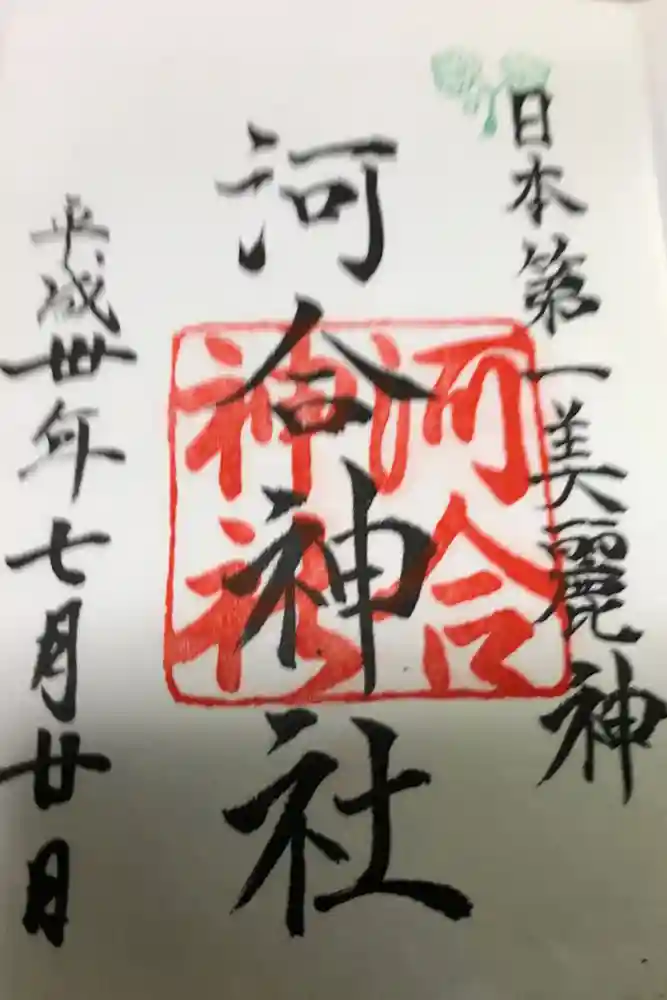 日本第一美麗神
河合神社
河合神社
平成卅年七月廿日